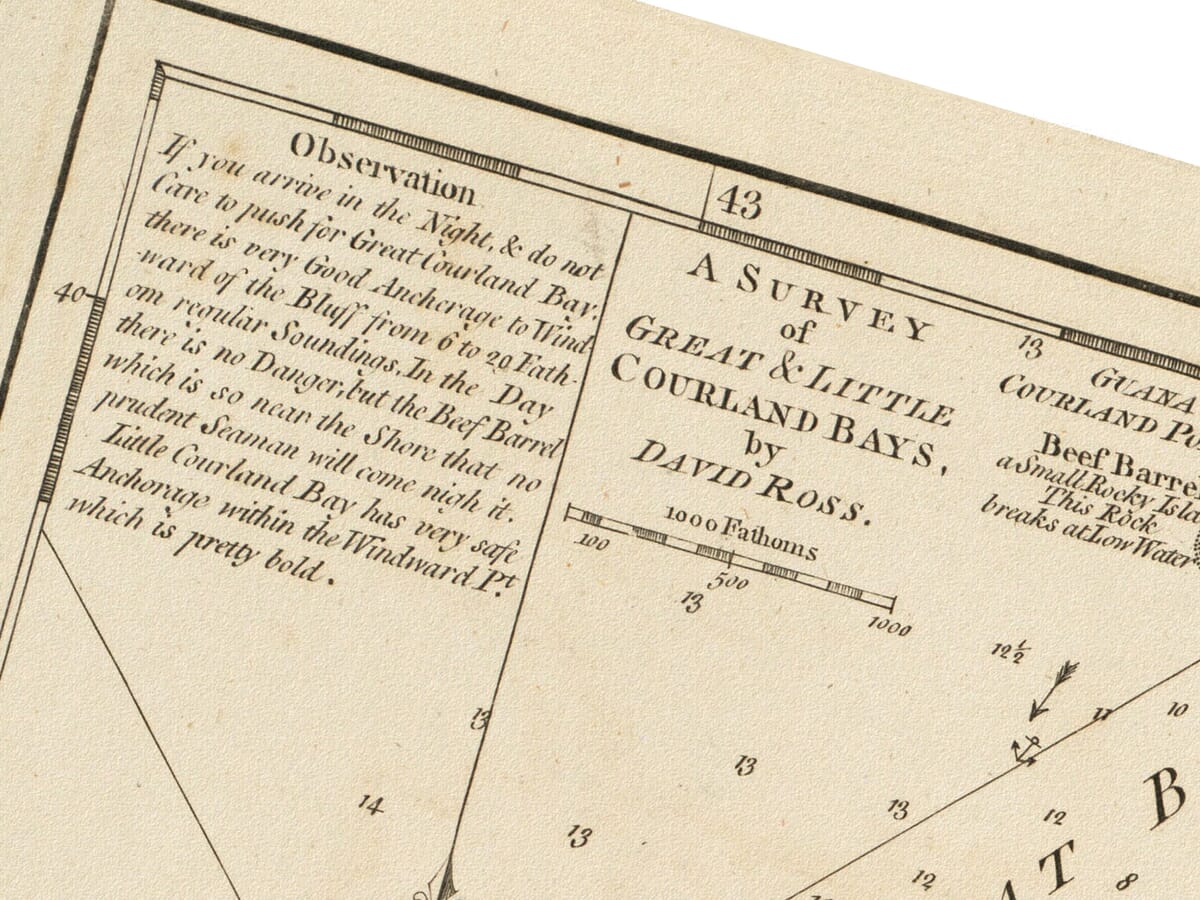 Observation
If you arrive in the Night, & do not
Care to push for Great Courland Bay,
there is very Good Anchorage to Wind
-ward of the Bluff from 6 to 20 Fath-
om regular Soundings. In the Day
there is no Danger, but the Beef Barrel
which is so near the Shore that no
prudent Seaman will come nigh it.
Little Courland Bay has very safe
Anchorage within the Windward Pt.
which is pretty bold.
43
40
A SURVEY
of
GREAT & LITTLE
COURLAND BAYS,
by
DAVID ROSS.
1000 Fathoms
100
500
1000
13
GUANA
COURLAND
Beef
a Small Rocky
This Rock
breaks at Low Water
13
12½
11
10
13
13
14
13
13
12
12
8
B
T